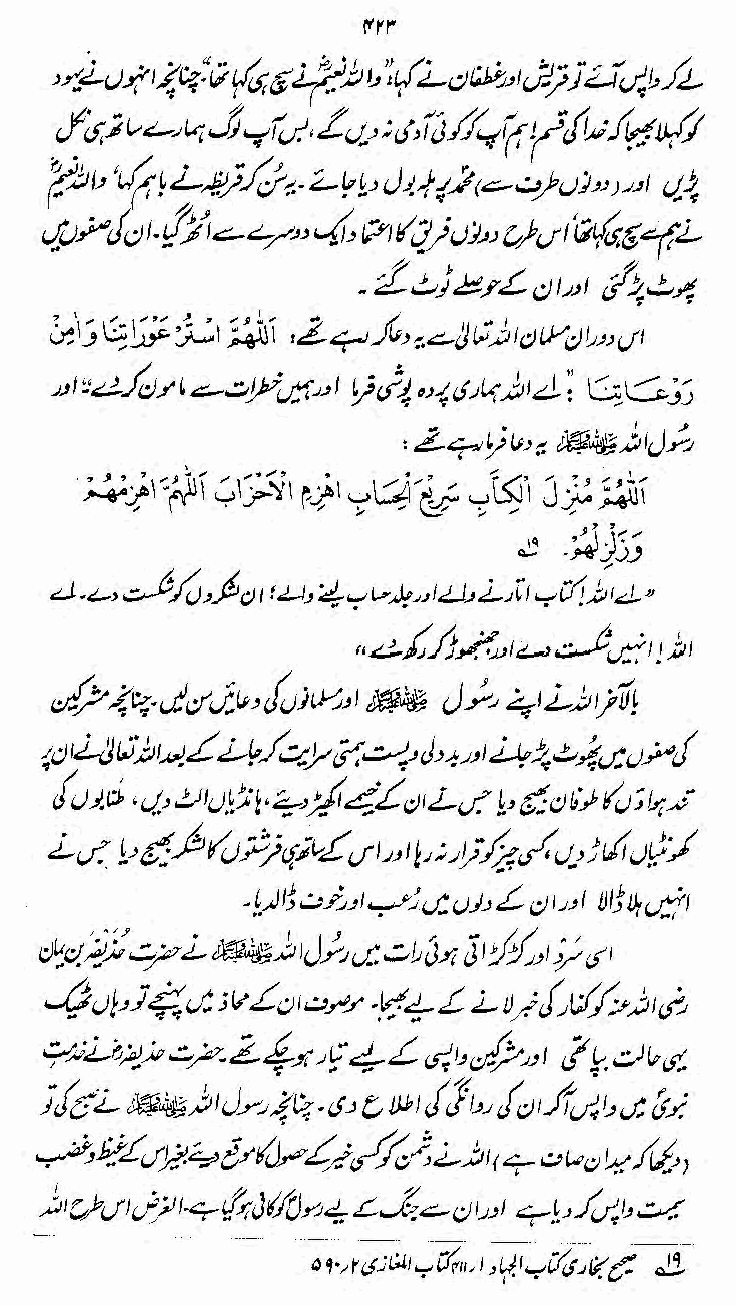 ۴۲۳
لے کر واپس آئے تو قریش اور غطفان نے کہا: "واللہ نعیمؓ نے سچ ہی کہا تھا"۔ چنانچہ انہوں نے یہود
کو کہلا بھیجا کہ خدا کی قسم! ہم آپ کو کوئی آدمی نہ دیں گے، بس آپ لوگ ہمارے ساتھ ہی نکل
پڑیں اور (دونوں طرف سے) محمدؐ پر ہلہ بول دیا جائے۔ یہ سُن کر قریظہ نے باہم کہا، "واللہ نعیمؓ
نے ہم سے سچ ہی کہا تھا"، اس طرح دونوں فریق کا اعتماد ایک دوسرے سے اُٹھ گیا۔ ان کی صفوں میں
پھوٹ پڑ گئی اور ان کے حوصلے ٹوٹ گئے۔
اس دوران مسلمان اللہ تعالیٰ سے یہ دعا کر رہے تھے: اَللّٰهُمَّ اسْتُرْ عَوْرَاتِنَا وَاٰمِنْ
رَوْعَاتِنَا "اے اللہ ہماری پردہ پوشی فرما اور ہمیں خطرات سے مامون کر دے"؛ اور
رسُول اللہ ﷺ یہ دعا فرما رہے تھے:
اَللّٰهُمَّ مُنْزِلَ الْكِتَابِ سَرِيْعَ الْحِسَابِ اهْزِمِ الْاَحْزَابَ اَللّٰهُمَّ اهْزِمْهُمْ
وَزَلْزِلْهُمْ۔ ۱۹؎
"اے اللہ! کتاب اتارنے والے اور جلد حساب لینے والے؛ ان لشکروں کو شکست دے۔ اے
اللہ! انہیں شکست دے اور جھنجھوڑ کر رکھ دے"
بالآخر اللہ نے اپنے رسُول ﷺ اور مسلمانوں کی دعائیں سن لیں۔ چنانچہ مشرکین
کی صفوں میں پھُوٹ پڑ جانے اور بددلی و پست ہمتی سرایت کر جانے کے بعد اللہ تعالیٰ نے ان پر
تند ہواؤں کا طوفان بھیج دیا جس نے ان کے خیمے اکھیڑ دیئے، ہانڈیاں الٹ دیں، طنابوں کی
کھونٹیاں اکھاڑ دیں، کسی چیز کو قرار نہ رہا اور اس کے ساتھ ہی فرشتوں کا لشکر بھیج دیا جس نے
انہیں ہلا ڈالا اور ان کے دلوں میں رُعب اور خوف ڈالدیا۔
اسی سَرْد اور کڑکڑاتی ہوئی رات میں رسُول اللہ ﷺ نے حضرت حُذَیْفَہؓ بن یمان
رضی اللہ عنہ کو کفار کی خبر لانے کے لیے بھیجا۔ موصوف ان کے محاذ میں پہنچے تو وہاں ٹھیک
یہی حالت بپا تھی اور مشرکین واپسی کے لیے تیار ہو چکے تھے۔ حضرت حذیفہؓ نے خدمتِ
نبویؐ میں واپس آ کر ان کی روانگی کی اطلاع دی۔ چنانچہ رسول اللہ ﷺ نے صبح کی تو
(دیکھا کہ میدان صاف ہے) اللہ نے دشمن کو کسی خیر کے حصول کا موقع دیئے بغیر اس کے غیظ و غضب
سمیت واپس کر دیا ہے اور ان سے جنگ کے لیے رسولؐ کو کافی ہو گیا ہے۔ الغرض اس طرح اللہ
۱۹؎ صحیح بخاری کتاب الجہاد ۱/۴۱۱ کتاب المغازی ۲/۵۹۰